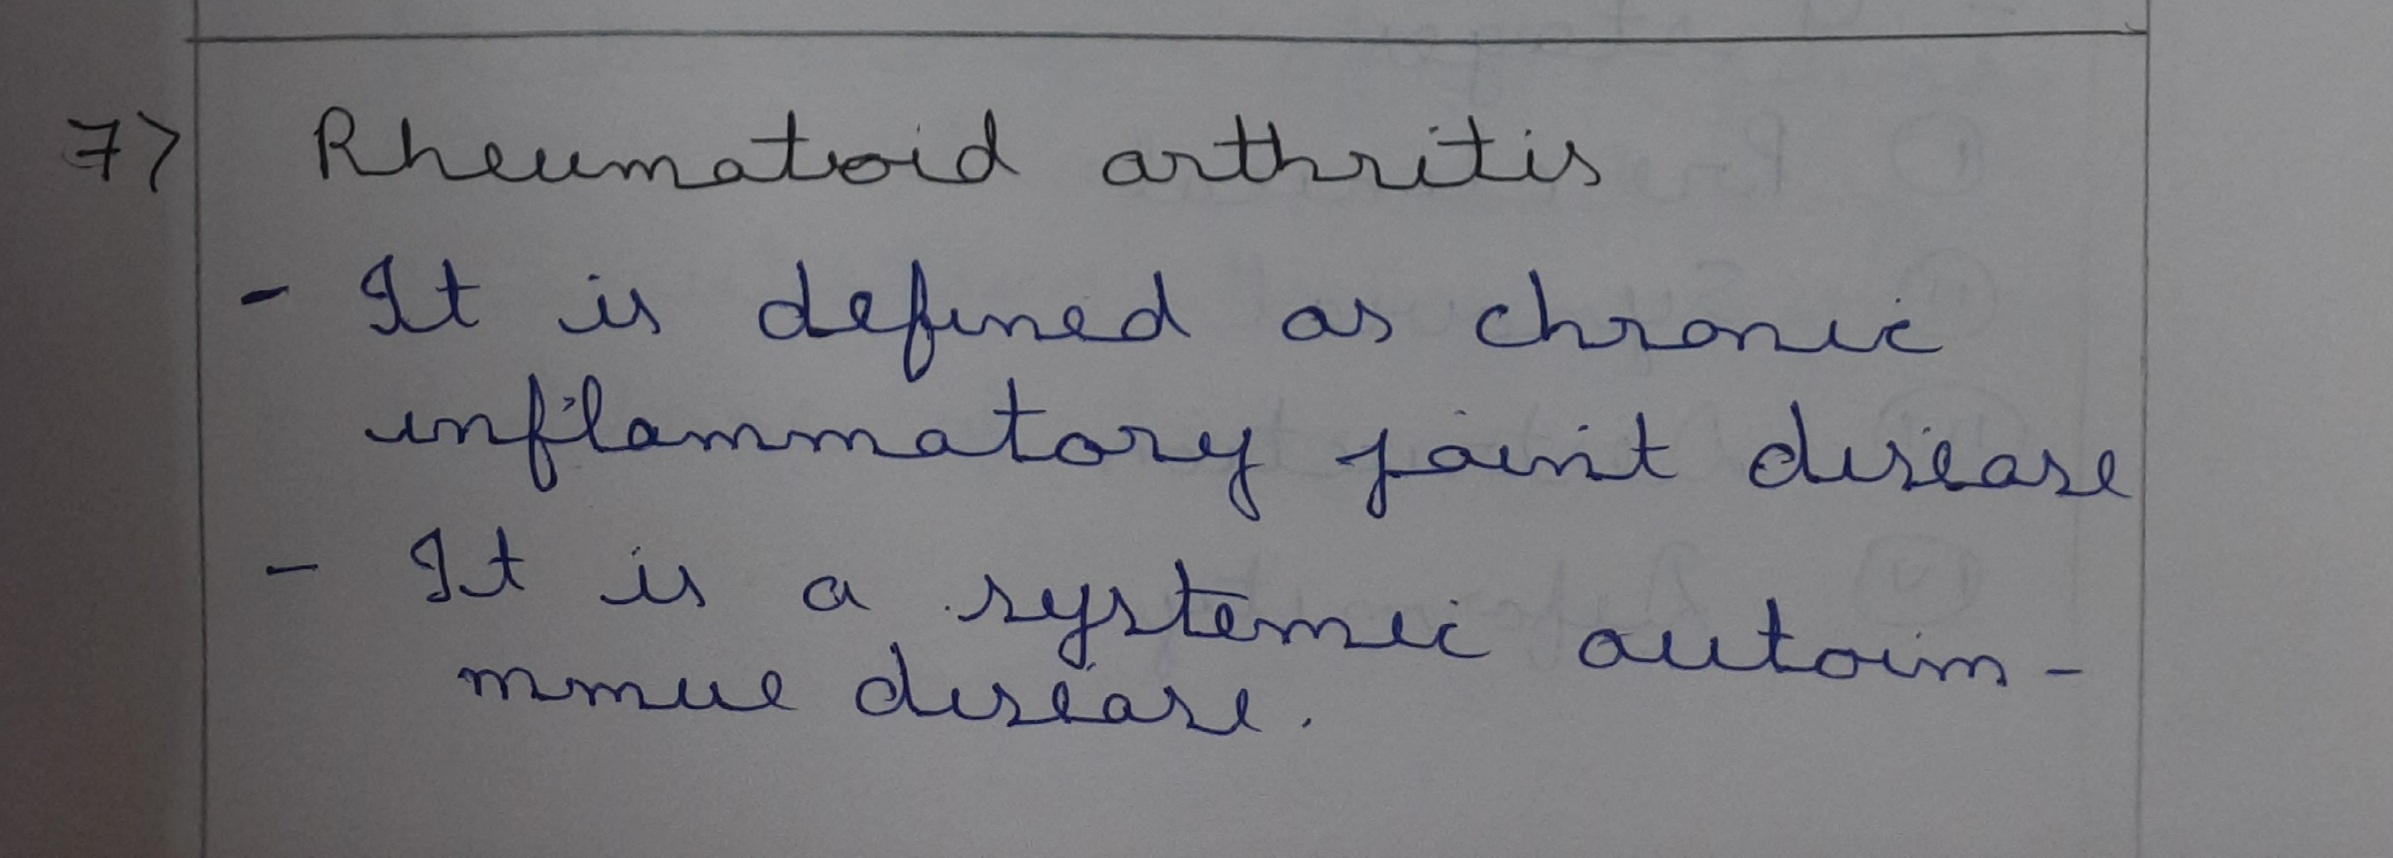 7> Rheumatoid arthritis
- It is defined as chronic
inflammatory joint disease
- It is a systemic autoim-
mmue disease.